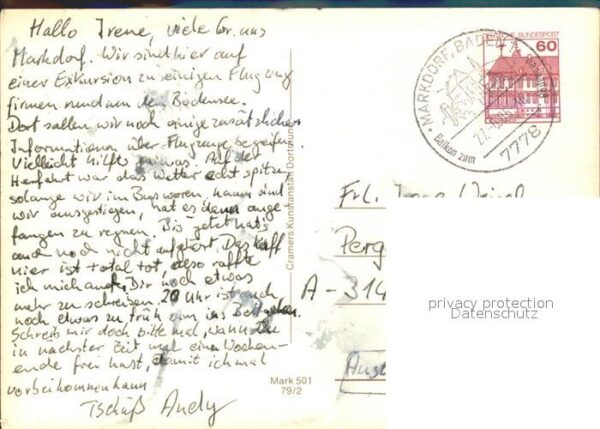 Hallo Irene, viele Gr. aus
Markdorf. Wir sind hier auf
einer Exkursion zu einigen Flugzeug
firmen rund um den Bodensee.
Dort sollen wir noch einige zusätzlichen
Informationen über Flugzeuge begreifen.
Vielleicht hilft's etwas. Auf der
Herfahrt war das Wetter echt spitze,
solange wir im Bus waren, kaum sind
wir ausgestiegen, hat es dann ange-
fangen zu regnen. Bis jetzt hat's
auch noch nicht aufgehört. Das Kaff
hier ist total tot, also raffte
ich mich auf, Dir noch etwas
mehr zu schreiben. 20 Uhr ist auch
noch etwas zu früh zum ins Bett gehen.
Schreib mir doch bitte mal, wann Du
in nächster Zeit mal eine Wochen-
ende frei hast, damit ich mal
vorbeikommen kann
Tschüß Andy
Cramers Kunstanstalt Dortmund
Mark 501
79/2
BUNDESPOST
60
MARKDORF, BADEN
Balkon zum
7778
Frl.
Perg
A - 314
privacy protection
Datenschutz